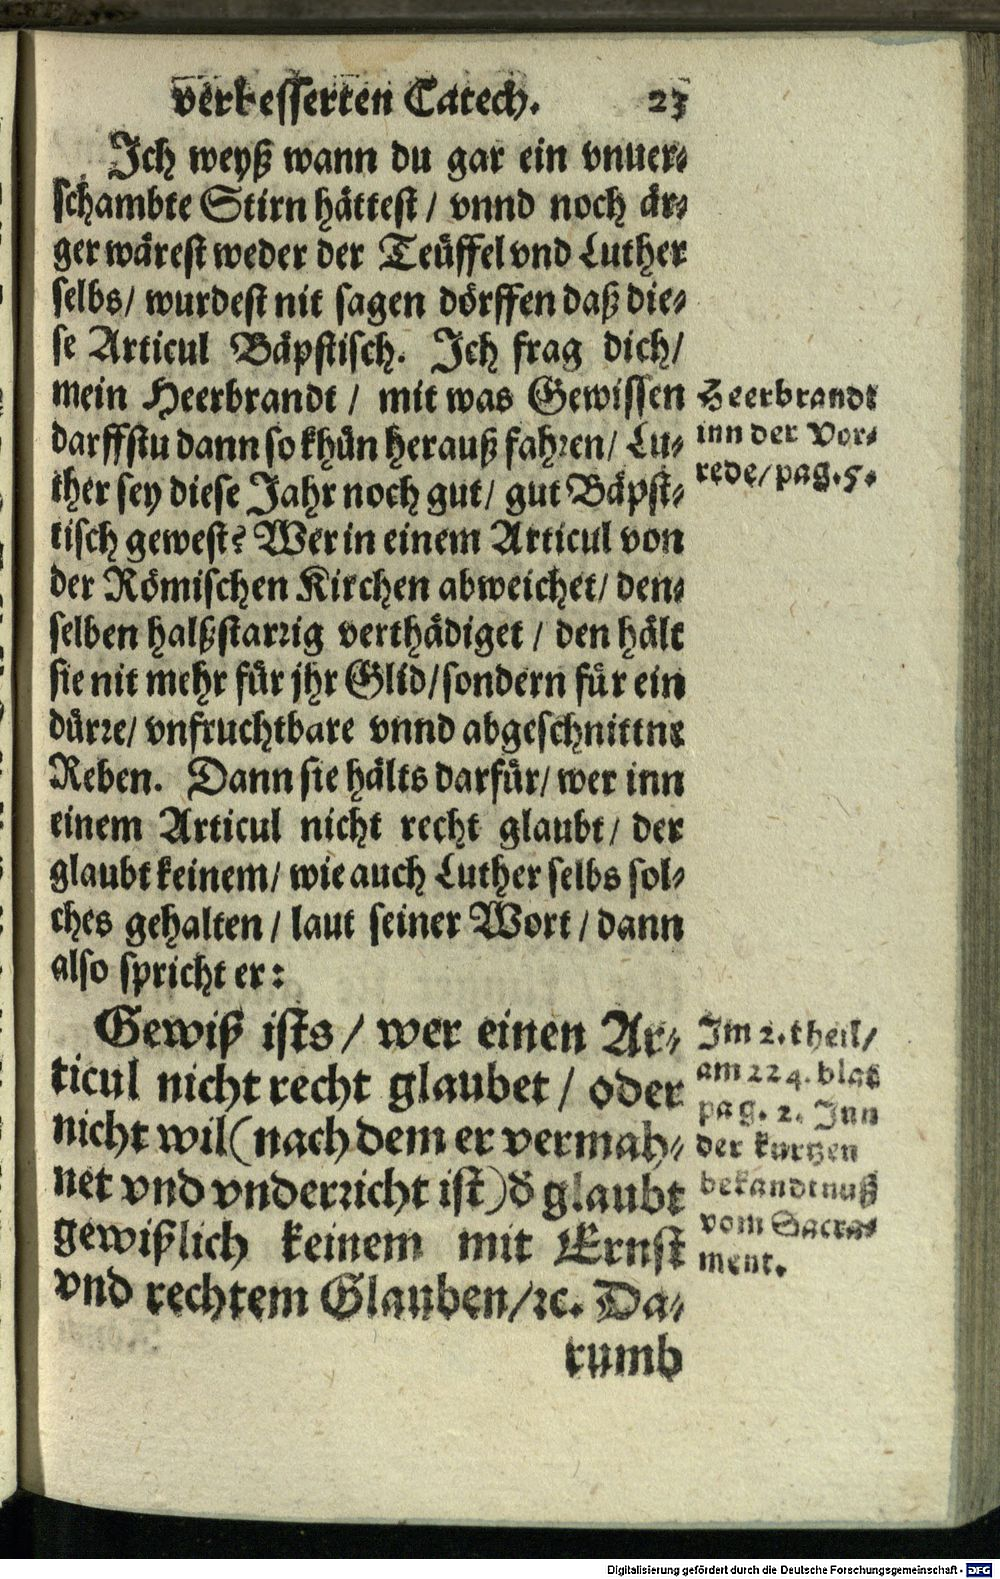 verbesserten Catech. 23
Ich weyß wann du gar ein vnuer-
schambte Stirn hättest / vnnd noch är-
ger wärest weder der Teüffel vnd Luther
selbs / wurdest nit sagen dörffen daß die-
se Articul Bäpstisch. Ich frag dich /
mein Heerbrandt / mit was Gewissen
darffstu dann so khün herauß fahren / Lu-
ther sey diese Jahr noch gut / gut Bäpst-
tisch gewest? Wer in einem Articul von
der Römischen Kirchen abweichet / den-
selben halßstarrig verthädiget / den hält
sie nit mehr für jhr Glid / sondern für ein
dürre / vnfruchtbare vnnd abgeschnittne
Reben. Dann sie hälts darfür / wer inn
einem Articul nicht recht glaubt / der
glaubt keinem / wie auch Luther selbs sol-
ches gehalten / laut seiner Wort / dann
also spricht er:
Gewiß ists / wer einen Ar-
ticul nicht recht glaubet / oder
nicht wil (nach dem er vermah-
net vnd vnderricht ist) d̃ glaubt
gewißlich keinem mit Ernst
vnd rechtem Glauben / ꝛc. Da-
rumb
Heerbrandt
inn der Vor-
rede / pag. 5.
Im 2. theil /
am 224. blat
pag. 2. Inn
der kurtzen
bekandtnuß
vom Sacra-
ment.
Digitalisierung gefördert durch die Deutsche Forschungsgemeinschaft - DFG